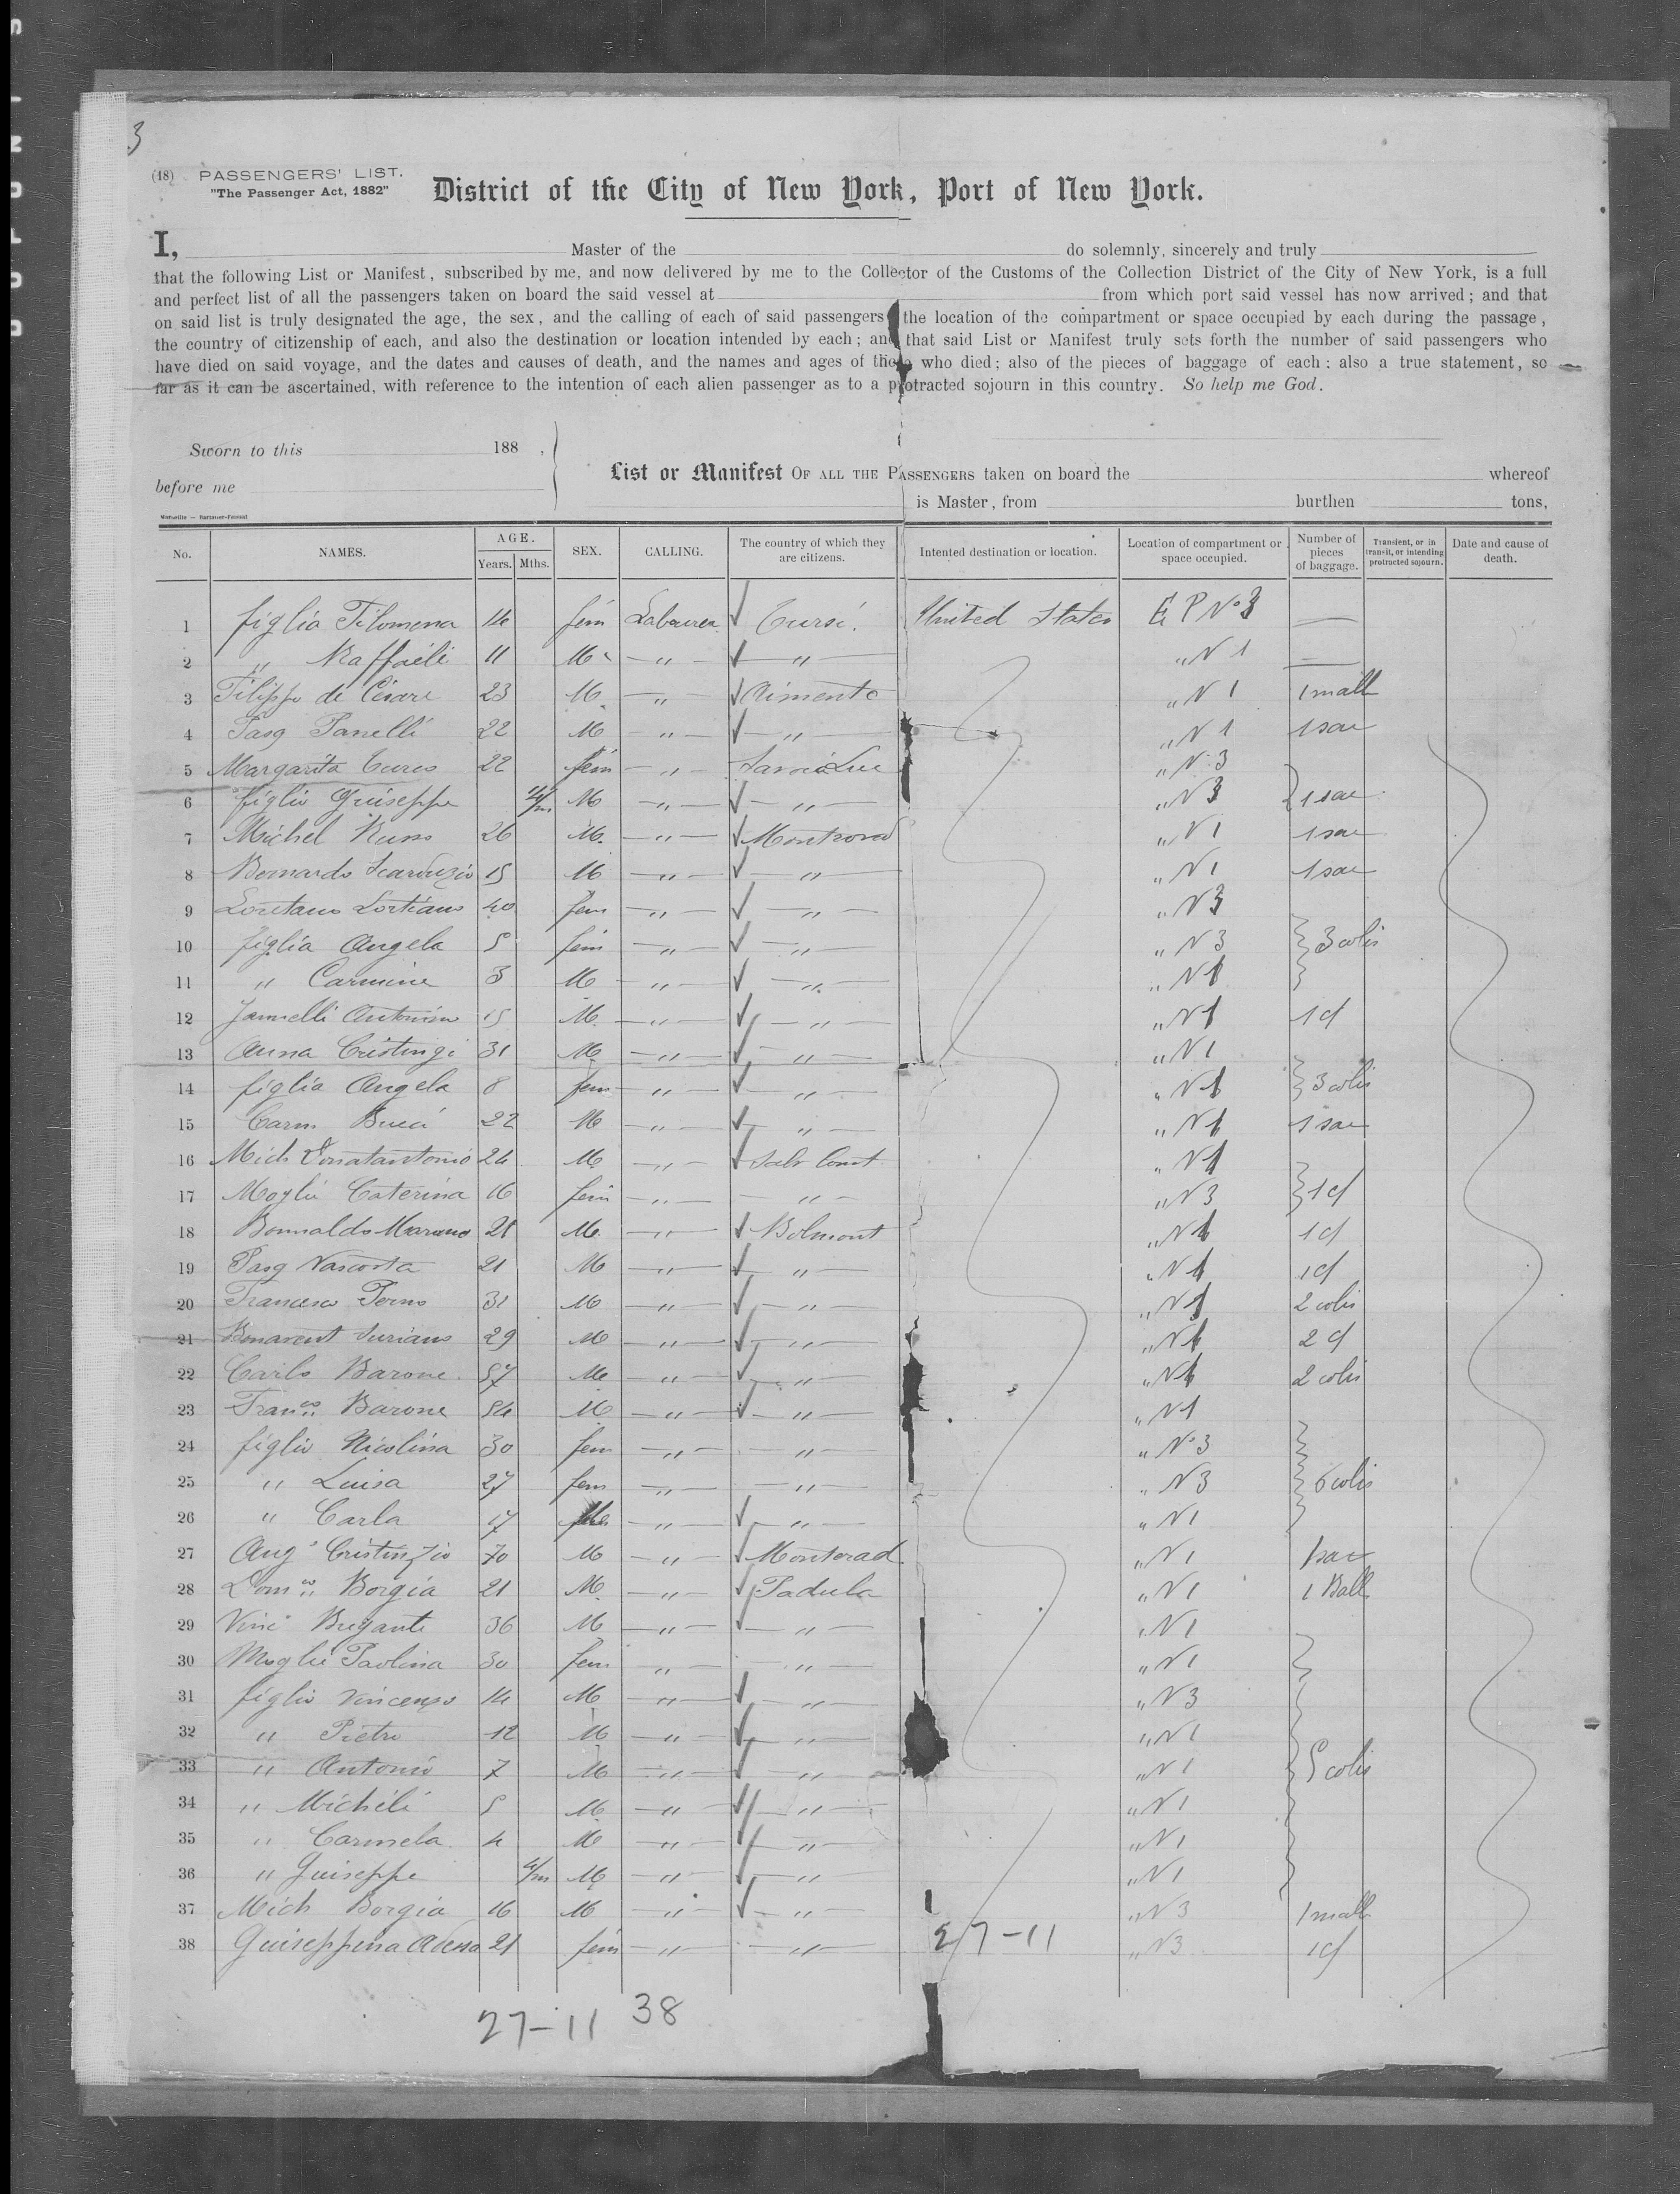 3
(18) PASSENGERS' LIST.
"The Passenger Act, 1882"
District of the City of New York, Port of New York.
I, Master of the do solemnly, sincerely and truly
that the following List or Manifest, subscribed by me, and now delivered by me to the Collector of the Customs of the Collection District of the City of New York, is a full
and perfect list of all the passengers taken on board the said vessel at from which port said vessel has now arrived; and that
on said list is truly designated the age, the sex, and the calling of each of said passengers the location of the compartment or space occupied by each during the passage,
the country of citizenship of each, and also the destination or location intended by each; and that said List or Manifest truly sets forth the number of said passengers who
have died on said voyage, and the dates and causes of death, and the names and ages of those who died; also of the pieces of baggage of each: also a true statement, so
far as it can be ascertained, with reference to the intention of each alien passenger as to a protracted sojourn in this country. So help me God.
Sworn to this 188 ,
before me
List or Manifest OF ALL THE PASSENGERS taken on board the whereof
is Master, from burthen tons,
No. NAMES. AGE. Years. Mths. SEX. CALLING. The country of which they are citizens. Intented destination or location. Location of compartment or space occupied. Number of pieces of baggage. Transient, or in transit, or intending protracted sojourn. Date and cause of death.
1 figlia Filomena 14 fem Cursi. United States E P No 3 —
2 " Raffaeli 11 M. " " " N 1 —
3 Filippo de Cesare 23 M. " Aimento " N 1 1 mall
4 Pasq Panelli 22 M " " " N 1 1 sac
5 Margarita Curco 22 fem " " N. 3
6 figlio Guiseppe M " " " N 3 1 sac
7 Michel Russo 26 M. " " N 1 1 sac
8 Bernardo Scarduzio 15 M " " " N 1 1 sac
9 40 fem " " " N 3
10 figlia Angela 5 fem " " " N 3 3 colis
11 " Carmine 3 M " " " N 1
12 Jannelli 15 M. " " " N 1 1 d
13 Anna 31 M " " " N 1
14 figlia Angela 8 fem " " " N 1 3 colis
15 Carm. Bucci 22 M " " " N 1 1 sac
16 Mich Donatantonio 24 M " " N 1
17 Moglie Caterina 16 fem " " " N 3 1 d
18 Marano 21 M. " Belmont " N 1 1 d
19 Pasq Nascosta 21 M " " " N 1 1 d
20 Francesco Perno 31 M " " " N 1 2 colis
21 Bonavent Suriano 29 M " " " N 1 2 d
22 Carlo Barone 57 M " " " N 1 2 colis
23 Franco Barone 54 M " " " N 1
24 figlio Nicolina 30 fem " " " No 3
25 " Luisa 27 fem " " " N 3 6 colis
26 " Carla 17 " " " N 1
27 Ang° Cristinzio 70 M " Monterad " N 1 1 sac
28 Domco Borgia 21 M. " Padula " N 1 1 Ball
29 Vinc° Briganti 36 M " " " N 1
30 Moglie Paolina 30 fem " " " N 1
31 figlio Vincenzo 14 M " " " N 3
32 " Pietro 12 M " " " N 1
33 " Antonio 7 M " " " N 1 5 colis
34 " Micheli 5 M " " " N 1
35 " Carmela 4 M " " " N 1
36 " Guiseppe M " " " N 1
37 Mich Borgia 16 M " " " N 3 1 mall
38 Guiseppina 21 fem " " 27-11 " N 3 1 d
27-11 38